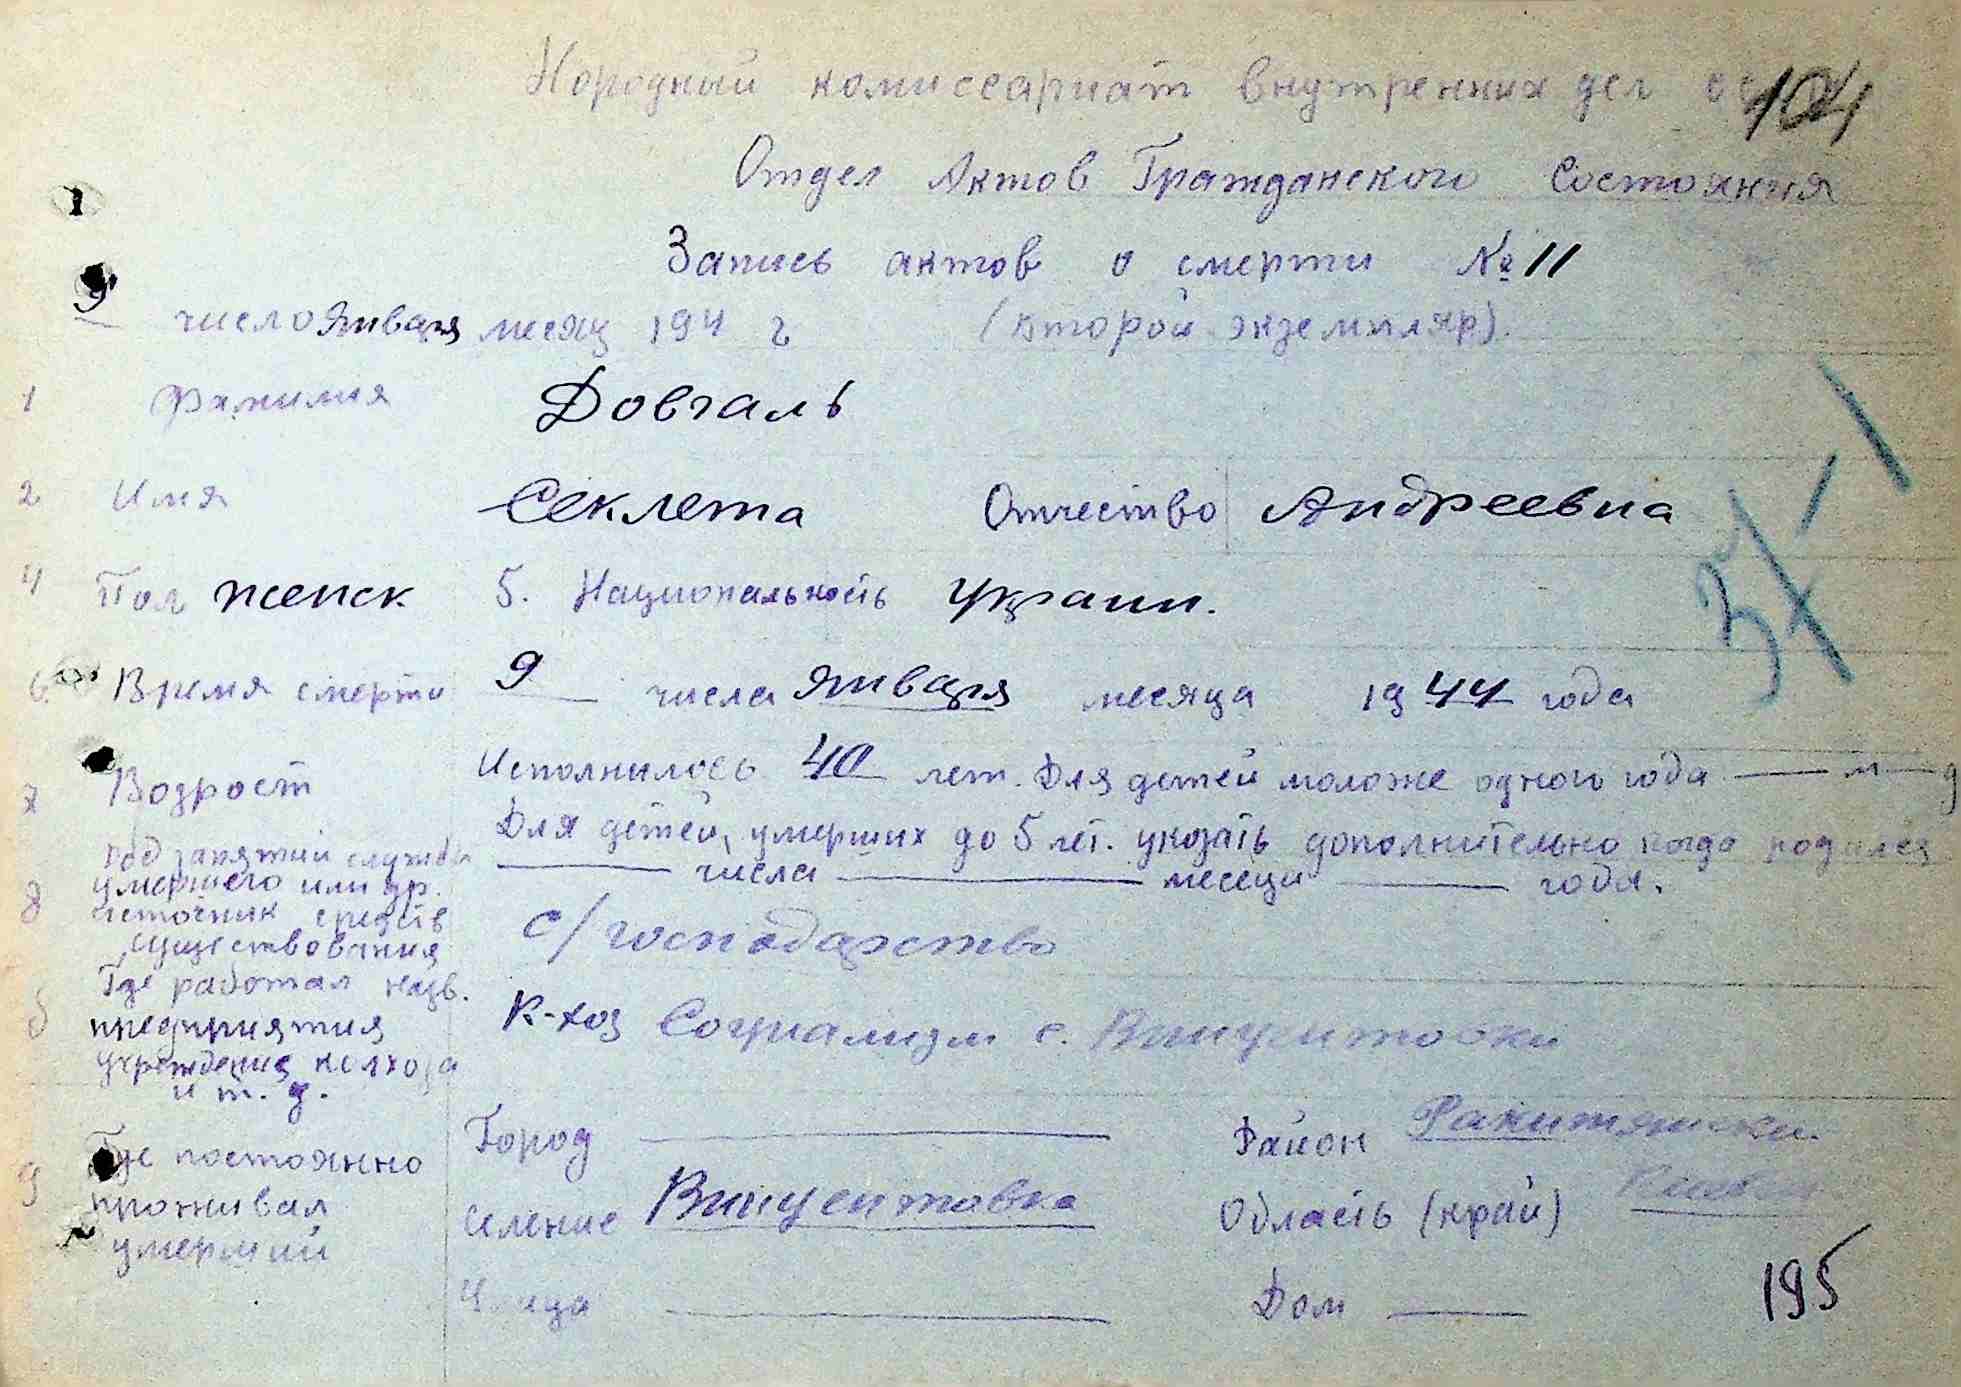 Народный комиссариат внутренних дел
104
Отдел Актов Гражданского Состояния
Запись актов о смерти № 11
9 число января месяц 194 г (второй экземпляр).
1 Фамилия Довгаль
2 Имя Секлета Отчество Андреевна
4 Пол женск 5. Национальность украин.
6. Время смерти 9 числа января месяца 1944 года
7 Возраст Исполнилось 40 лет. Для детей моложе одного года — м — д
Для детей, умерших до 5 лет. указать дополнительно когда родился
— числа — месеца — года.
8 Род занятий службы
умершего или др.
источник средств
существования
с/господарство
Где работал назв.
предприятия
учреждения колхоза
и т. д.
К-хоз Социализм с. Винцентовки
9 Где постоянно
проживал
умерший
Город — Район Ракитянски.
Селение Винцентовка Область (край)
Улица — Дом —
195